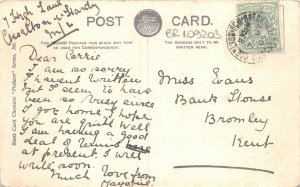 7 High Lane
Chorlton cum Hardy
M/c
POST CARD
FOR INLAND POSTAGE THIS SPACE MAY NOW
BE USED FOR CORRESPONDENCE.
THE ADDRESS ONLY TO BE
WRITTEN HERE.
BR109203
Dear Carrie
I am so sorry
I havent written
yet I seem to have
been so busy since
I got home. I hope
you are quite well
I am having a good
deal of tennis here
at present. I will
write soon.
Much love from
Miss Evans
Bank House
Bromley
Kent